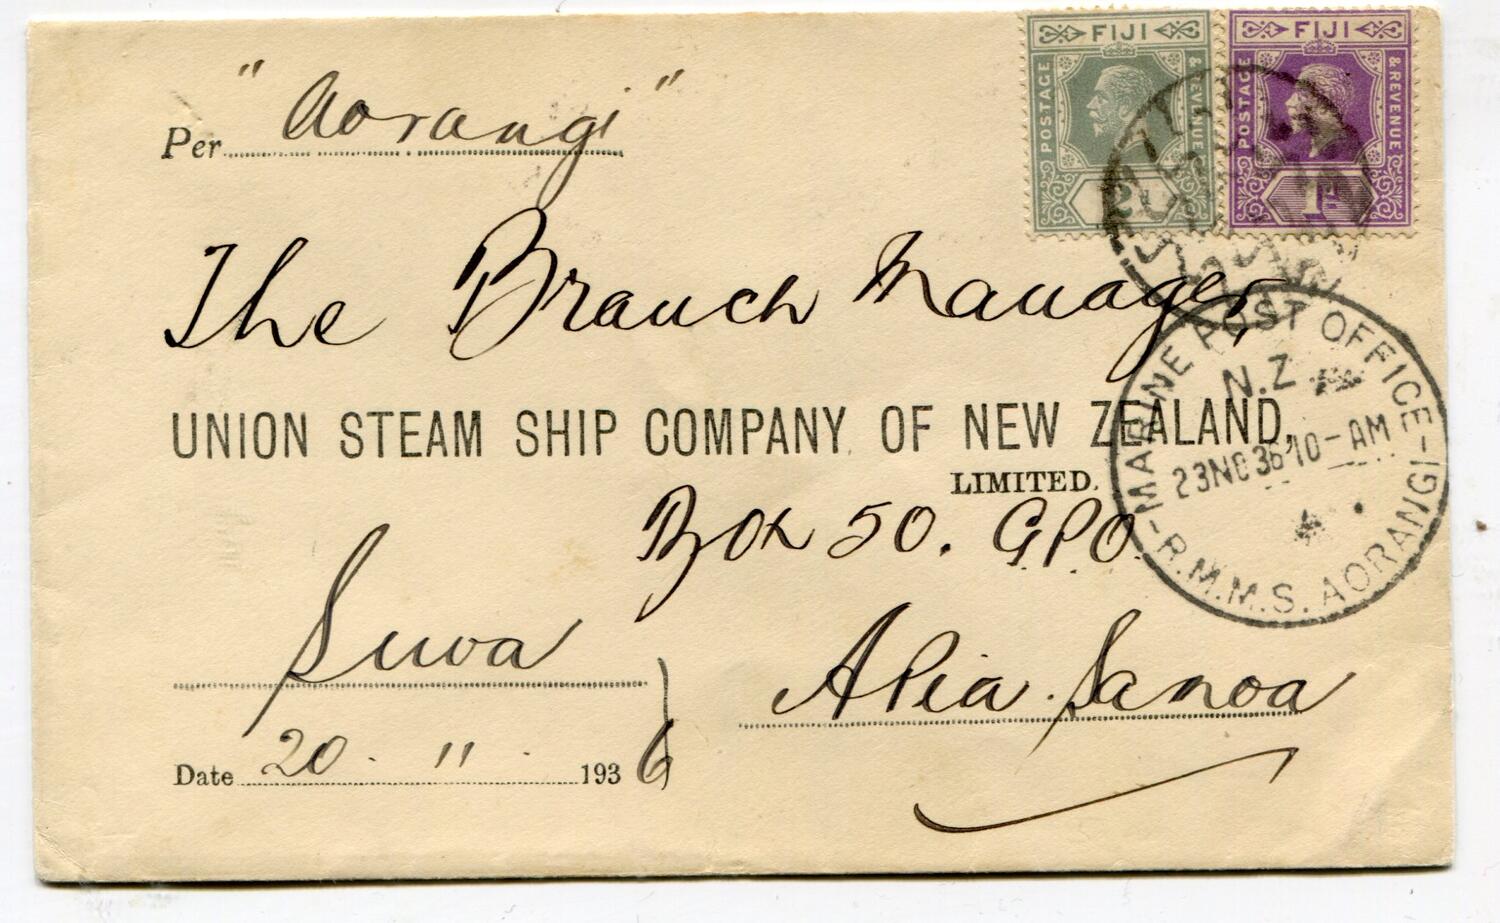 FIJI
POSTAGE & REVENUE
2d
FIJI
POSTAGE & REVENUE
1d
Per "Aorangi"
The Branch Manager,
UNION STEAM SHIP COMPANY OF NEW ZEALAND,
LIMITED.
Box 50. G.P.O.
Apia. Samoa
Suva
Date 20. 11. 1936
-MARINE POST OFFICE-
N.Z.
23NO36 10-AM
R.M.M.S. AORANGI